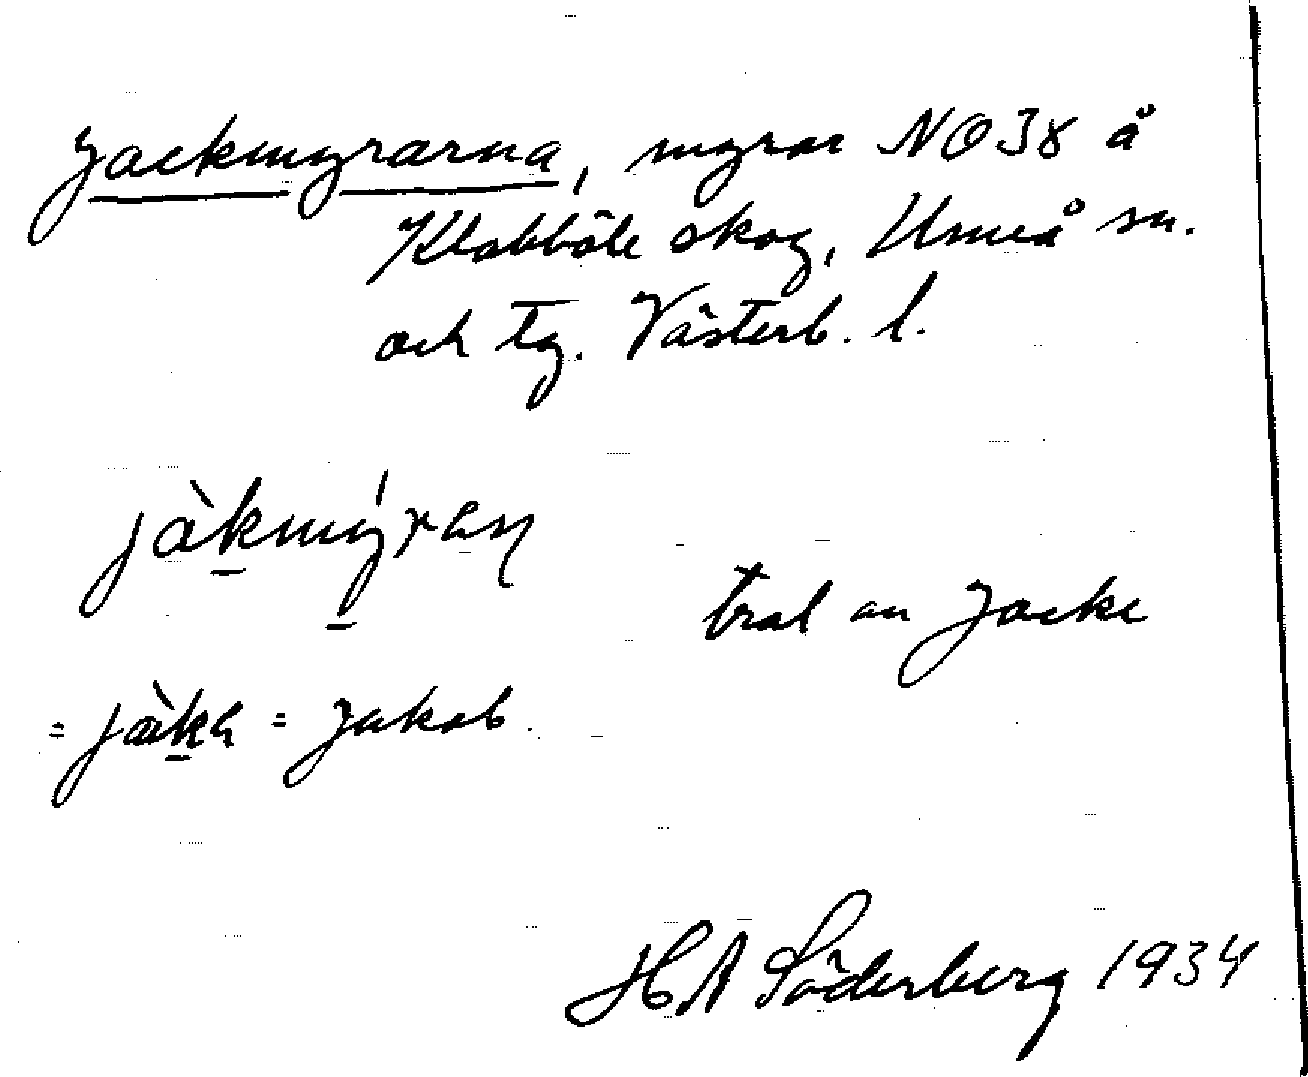 Jackmyrarna, myrar NO38 å
Klabböle skog, Umeå sn.
och tg. Västerb. l.
jàkmýran
bral an Jacke
= jàka = Jakob.
HA Söderberg 1934